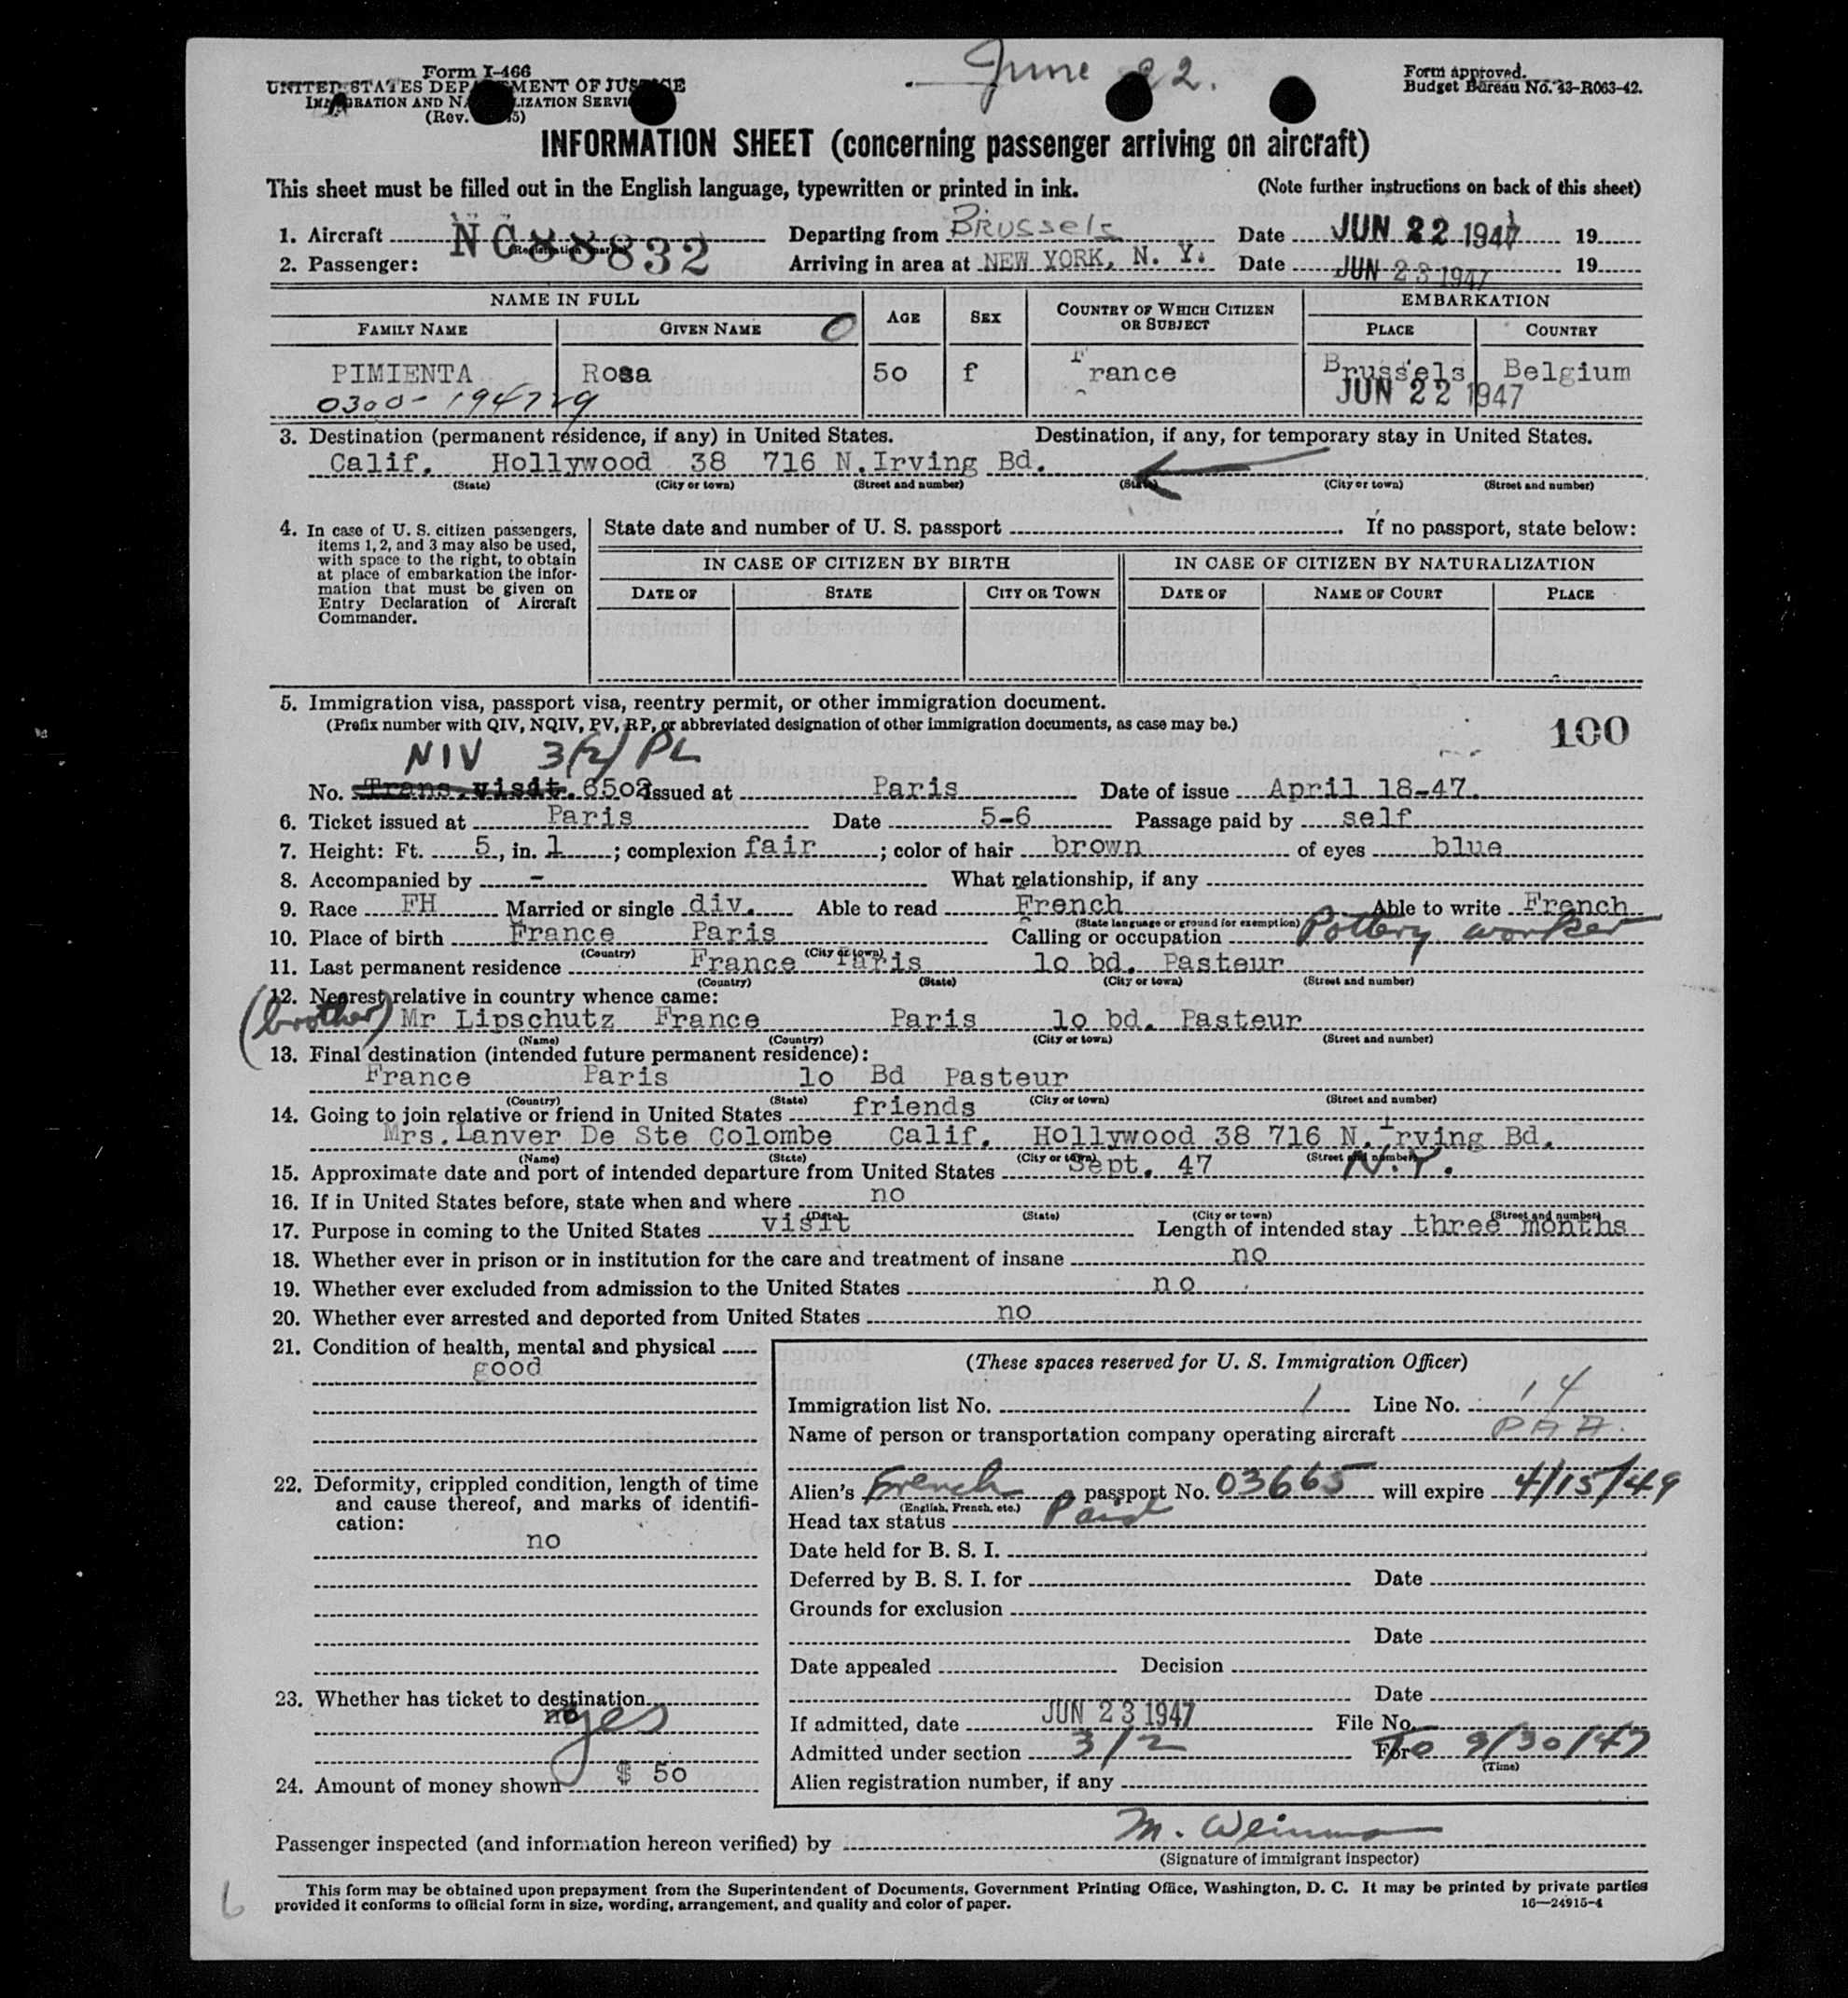 June 22.
Form I-466
UNITED STATES DEPARTMENT OF JUSTICE
IMMIGRATION AND NATURALIZATION SERVICE
(Rev.
Form approved.
Budget Bureau No. 43-R063-42.
INFORMATION SHEET (concerning passenger arriving on aircraft)
This sheet must be filled out in the English language, typewritten or printed in ink. (Note further instructions on back of this sheet)
1. Aircraft NC88832 (Registration marks) Departing from Brussels Date JUN 22 1947 19
2. Passenger: Arriving in area at NEW YORK, N. Y. Date JUN 23 1947 19
NAME IN FULL AGE SEX COUNTRY OF WHICH CITIZEN OR SUBJECT EMBARKATION
FAMILY NAME GIVEN NAME PLACE COUNTRY
PIMIENTA Rosa 50 f France Brussels Belgium
0300- 194729 JUN 22 1947
3. Destination (permanent residence, if any) in United States. Destination, if any, for temporary stay in United States.
Calif. Hollywood 38 716 N.Irving Bd.
(State) (City or town) (Street and number) (State) (City or town) (Street and number)
4. In case of U. S. citizen passengers, items 1, 2, and 3 may also be used, with space to the right, to obtain at place of embarkation the information that must be given on Entry Declaration of Aircraft Commander.
State date and number of U. S. passport If no passport, state below:
IN CASE OF CITIZEN BY BIRTH IN CASE OF CITIZEN BY NATURALIZATION
DATE OF STATE CITY OR TOWN DATE OF NAME OF COURT PLACE
5. Immigration visa, passport visa, reentry permit, or other immigration document.
(Prefix number with QIV, NQIV, PV, RP, or abbreviated designation of other immigration documents, as case may be.) 100
NIV 3(2) PL
No. Trans.visit. 6502 issued at Paris Date of issue April 18-47.
6. Ticket issued at Paris Date 5-6 Passage paid by self
7. Height: Ft. 5, in. 1; complexion fair; color of hair brown of eyes blue
8. Accompanied by - What relationship, if any
9. Race FH Married or single div. Able to read French Able to write French
(State language or ground for exemption)
10. Place of birth France Paris Calling or occupation Pottery worker
(Country) (City or town)
11. Last permanent residence France Paris 10 bd. Pasteur
(Country) (State) (City or town) (Street and number)
12. Nearest relative in country whence came:
(brother) Mr Lipschutz France Paris 10 bd. Pasteur
(Name) (Country) (City or town) (Street and number)
13. Final destination (intended future permanent residence):
France Paris 10 Bd Pasteur
(Country) (State) (City or town) (Street and number)
14. Going to join relative or friend in United States friends
Mrs.Lanver De Ste Colombe Calif. Hollywood 38 716 N. Irving Bd.
(Name) (State) (City or town) (Street and number)
15. Approximate date and port of intended departure from United States Sept. 47 N.Y.
16. If in United States before, state when and where no
(Date) (State) (City or town) (Street and number)
17. Purpose in coming to the United States visit Length of intended stay three months
18. Whether ever in prison or in institution for the care and treatment of insane no
19. Whether ever excluded from admission to the United States no
20. Whether ever arrested and deported from United States no
21. Condition of health, mental and physical
good
22. Deformity, crippled condition, length of time and cause thereof, and marks of identification:
no
23. Whether has ticket to destination
no yes
24. Amount of money shown $ 50
(These spaces reserved for U. S. Immigration Officer)
Immigration list No. 1 Line No. 14
Name of person or transportation company operating aircraft PAA.
Alien's French passport No. 03665 will expire 4/15/49
(English, French, etc.)
Head tax status Paid
Date held for B. S. I.
Deferred by B. S. I. for Date
Grounds for exclusion
Date
Date appealed Decision
Date
If admitted, date JUN 23 1947 File No.
Admitted under section 3/2 For To 9/30/47
(Time)
Alien registration number, if any
Passenger inspected (and information hereon verified) by M. Weinman
(Signature of immigrant inspector)
This form may be obtained upon prepayment from the Superintendent of Documents, Government Printing Office, Washington, D. C. It may be printed by private parties
provided it conforms to official form in size, wording, arrangement, and quality and color of paper. 16—24915-4
6